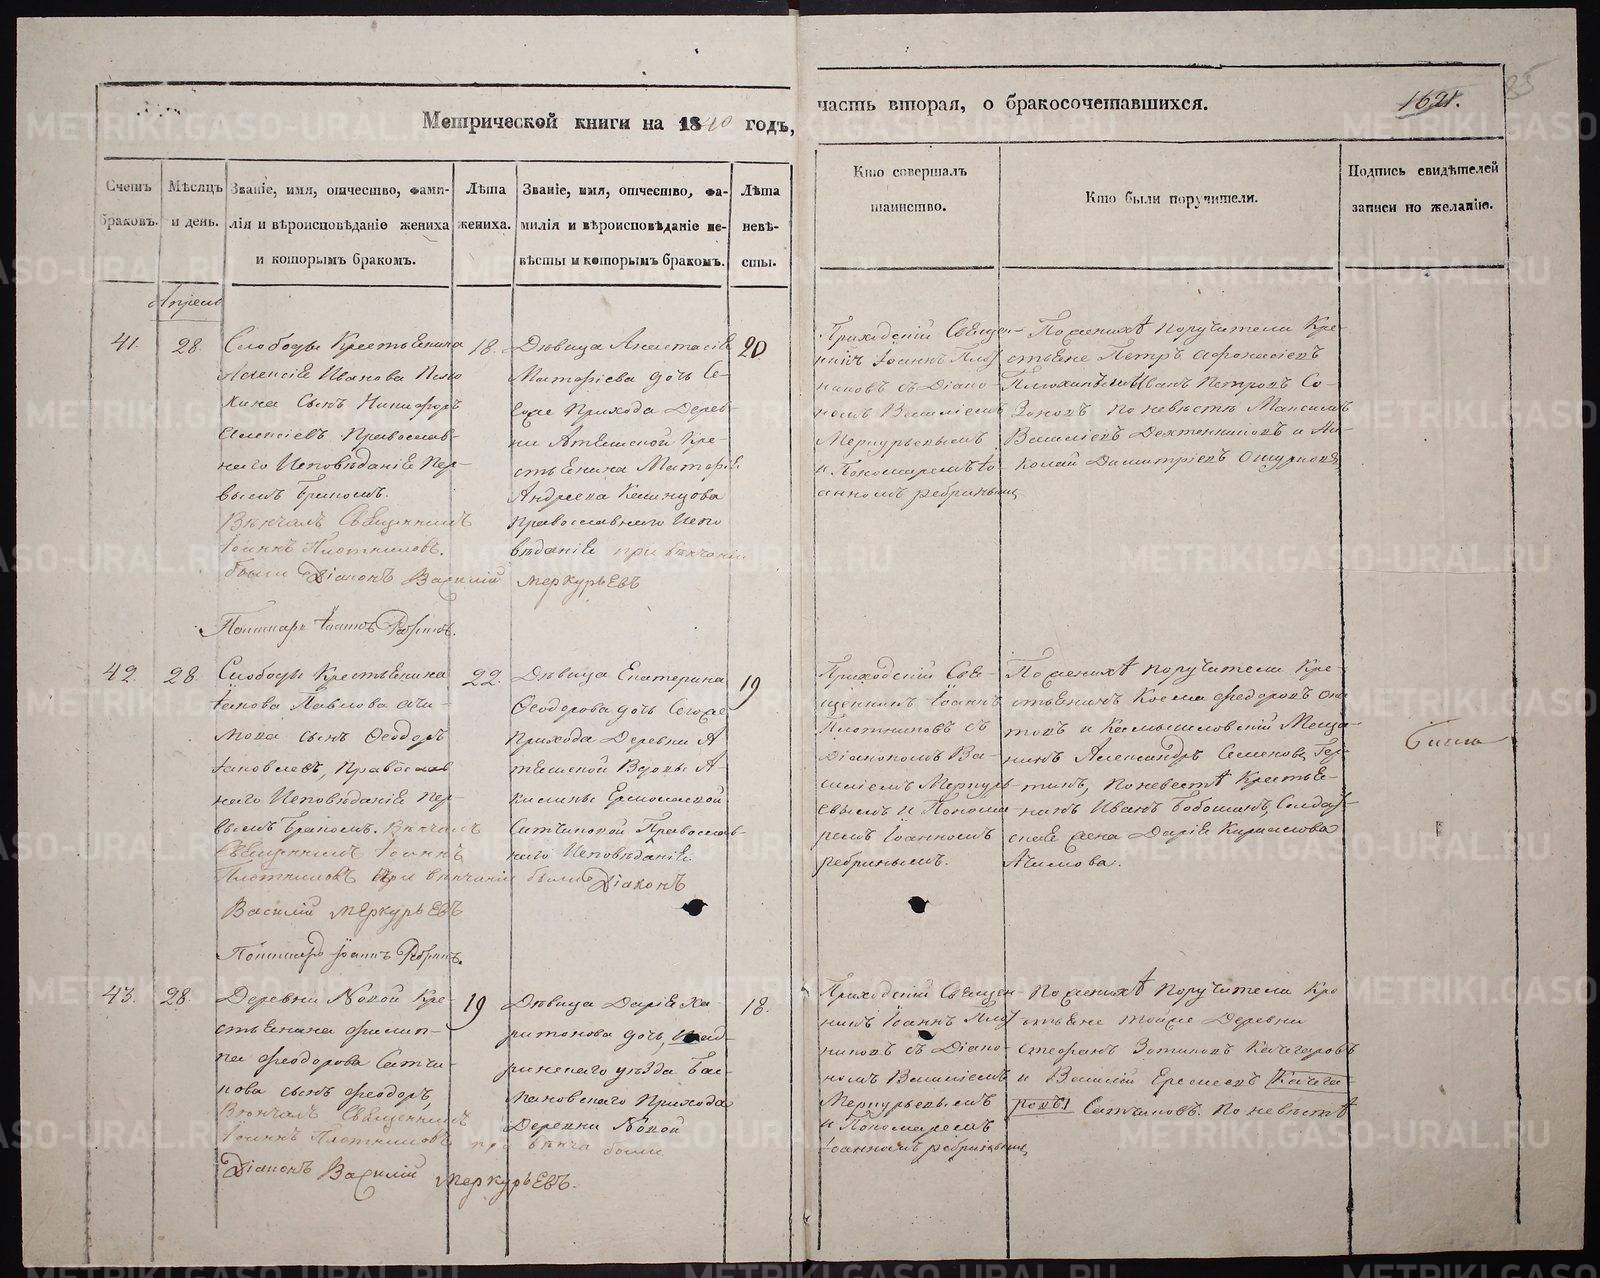 Метрической книги на 1840 годъ,
часть вторая, о бракосочетавшихся.
1621.
Счетъ браковъ.
Мѣсяцъ и день.
Званіе, имя, отчество, фами-
лія и вѣроисповѣданіе жениха
и которымъ бракомъ.
Лѣта
жениха.
Званіе, имя, отчество, фа-
милія и вѣроисповѣданіе не-
вѣсты и которымъ бракомъ.
Лѣта
невѣ-
сты.
Кто совершалъ
таинство.
Кто были поручители.
Подпись свидѣтелей
записи по желанію.
Апрель
41.
28.
Слободы Крестьянина
Алексіѣ Иванова
сынъ Никифоръ
Алексіевъ Православ-
наго Исповѣданіѣ Пер-
вымъ Бракомъ.
Вѣнчалъ Священникъ
Іоаннъ Плотниковъ.
были Діаконъ Василій Меркурьевъ
Пономарь Іоаннъ Ребринъ.
18.
Дѣвица Анастасіѣ
дочь Се-
гоже Прихода Дерев-
ни Кре-
стьянина
Андреева
Православнаго Испо
вѣданіѣ при вѣнчаніи
20
Приходскій Священ-
никъ Іоаннъ Плот
никовъ съ Діако-
номъ Василіемъ
Меркурьевымъ
и Пономаремъ Іо-
анномъ Ребринымъ
По женихѣ поручители Кре-
стьяне Петръ Афонасіевъ
Иванъ Петровъ Со-
зоновъ по невѣстѣ Максимъ
Василіевъ и Ни-
колай Димитріевъ Ошурковъ
42
28.
Слободы Крестьянина
Іакова Павлова Ачи-
мова сынъ Ѳеодоръ
Іаковлевъ, Православ
наго Исповѣданіѣ Пер-
вымъ Бракомъ. Вѣнчалъ
Священникъ Іоаннъ
Плотниковъ при вѣнчаніи были Діаконъ
Василій Меркурьевъ
Пономарь Іоаннъ Ребринъ.
22.
Дѣвица Екатерина
Ѳеодорова дочь Сегоже
Прихода Деревни А
Вдовы А-
килины Ермолаевой
Сатчиковой Православ-
наго Исповѣданіѣ
19
Приходскій Свя-
щенникъ Іоаннъ
Плотниковъ съ
Діакономъ Ва-
силіемъ Меркурь-
евымъ и Понома
ремъ Іоанномъ
Ребринымъ.
По женихѣ поручители Кре-
стьянинъ Косма Федоровъ
и Камышловскій Меща-
нинъ Александръ Семеновъ
по невестѣ Крестья-
нинъ Иванъ Солдат-
ская жена Даріѣ Кирилова
Ачимова.
43.
28.
Деревни Новой Кре-
стьянина Филип-
па Феодорова Сатчи-
кова сынъ Феодоръ,
Вѣнчалъ Священникъ
Іоаннъ Плотниковъ при вѣнча были
Діаконъ Василій Меркурьевъ.
19
Дѣвица Даріѣ Ха-
ритонова дочь, Шад-
ринскаго уѣзда Бас-
мановскаго Прихода
Деревни Новой
18.
Приходскій Священ
никъ Іоаннъ Плот
никовъ съ Діако-
номъ Василіемъ
Меркурьевымъ
и Пономаремъ
Іоанномъ Ребринымъ
По женихѣ поручители Кре
стьяне тойже Деревни
Стефанъ Зотиковъ Качегаровъ
и Василій Еремеевъ Качега-
ровъ Сатчиковъ. По невѣстѣ